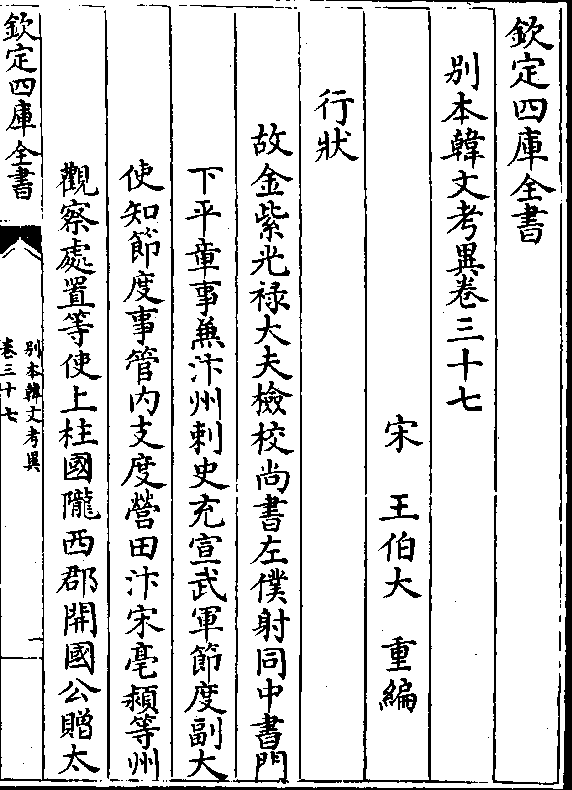 欽定四庫全書
別本韓文考異卷三十七
宋　王伯大　重編
行狀
故金紫光禄大夫檢校尚書左僕射同中書門
下平章事兼汴州刺史充宣武軍節度副大
使知節度事管内支度營田汴宋亳潁等州
觀察處置等使上柱國隴西郡開國公贈太
欽定四庫全書
別本韓文考異
卷三十七
一